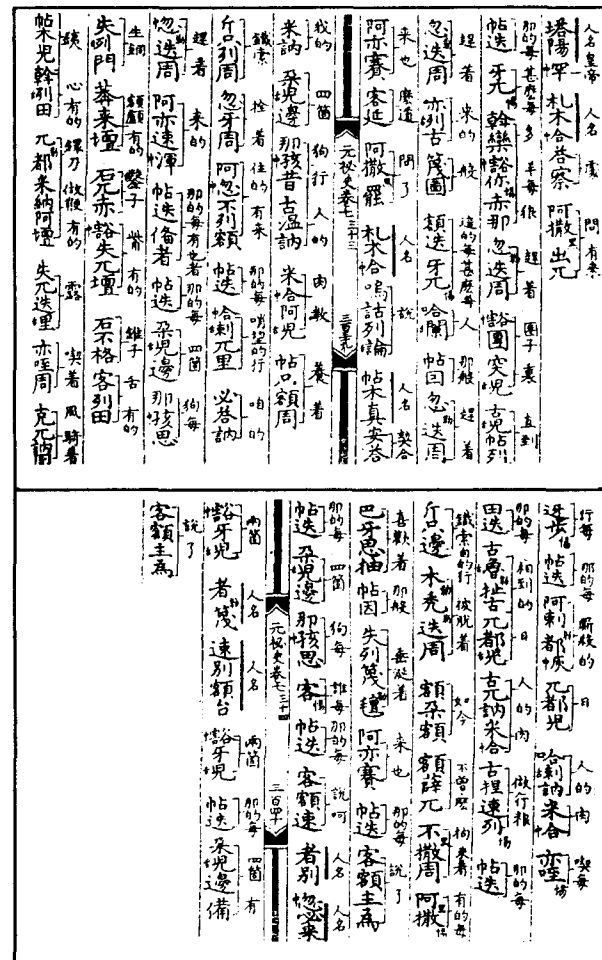 人名皇帝 人名 處 問有来
塔陽罕 札木合荅察 阿撒出兀
那的每 甚麽每 多 羊每 狼 趕着 圈子裏 直到
帖迭 牙兀 斡欒豁你亦那 忽迭周 豁團 突児 古児帖列
趕着 来的 般 這的每甚麽每 人 那般 趕着
忽迭周 亦列古 篾圖 額迭 牙兀 哈闌 帖因 忽迭周
来也 麽道 問了 人名 說 人名 契合
阿亦賽 客延 阿撒罷 札木合 嗚詁列論 帖木真安荅
元秘史卷七 三十三
我的 四箇 狗行 人的 肉教 養着
米訥 朶児邊 那孩昔古温訥 米合阿児 帖只額周
鐵索 拴着 住的有来 那的每 哨望的行 咱的
斤只列周 忽牙周 阿忽不列額 帖迭 哈剌兀里 必荅訥
趕着 来的 那的每有也者那的每 四箇 狗每
忽迭周 阿亦速渾 帖迭備者 帖迭 朶児邊 那孩思
生銅 額顱有的 鑿子 觜有的 錐子 舌有的
失咧門 莽来壇 石兀赤豁失兀壇 石不格 客列田
銕 心有的 鐶刀 做鞭有的 露 喫着 風騎着
帖木児斡咧田 兀都米納阿壇 失兀迭里 亦咥周 克兀訥
行每 那的每 厮殺的 日 人的 肉 喫每
帖迭 阿剌都灰 兀都児 哈剌訥 米合 亦咥
那的每 相到的 日 人的 肉 做行粮 那的每
田迭 古魯扯古兀都児 古兀訥米合 古捏速列 帖迭
鐵索自的行 被脫着 如今 不曾麽 拘来着 有的每
斤只邊 木禿迭周 額朶額 額薛兀 不撒周 阿撒
喜歡着 那般 垂涎着 来也 那的每 說了
巴牙思抽 帖因 失列篾 阿亦賽 帖迭 客額主爲
那的每 四箇 狗每 誰每 那的每 說呵 人名 人名
帖迭 朶児邊 那孩思 客 帖迭 客額速 者別 忽必来
元秘史卷七 三十四 三百四十
兩箇 人名 人名 兩箇 那的每 四箇 有
豁牙児 者篾 速別額台 豁牙児 帖迭 朶児邊 備
說了
客額主爲